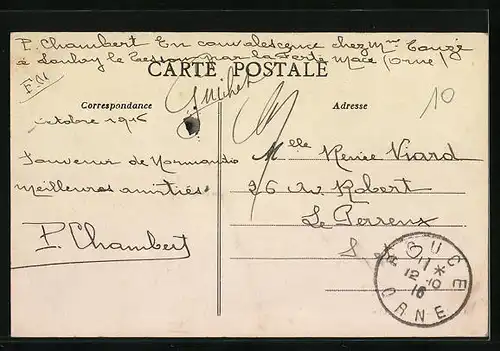 P. Chambert En convalescence chez Mme Couzé
à par la Ferté Macé (Orne)
F.M
CARTE POSTALE
Guichet
Correspondance
Adresse
10
octobre 1916
Souvenir de Normandie
meilleures amitiés
P. Chambert
Melle Renée Viard
26 Av. Robert
Le Perreux
S
BRIOUCE
12-10
16
ORNE